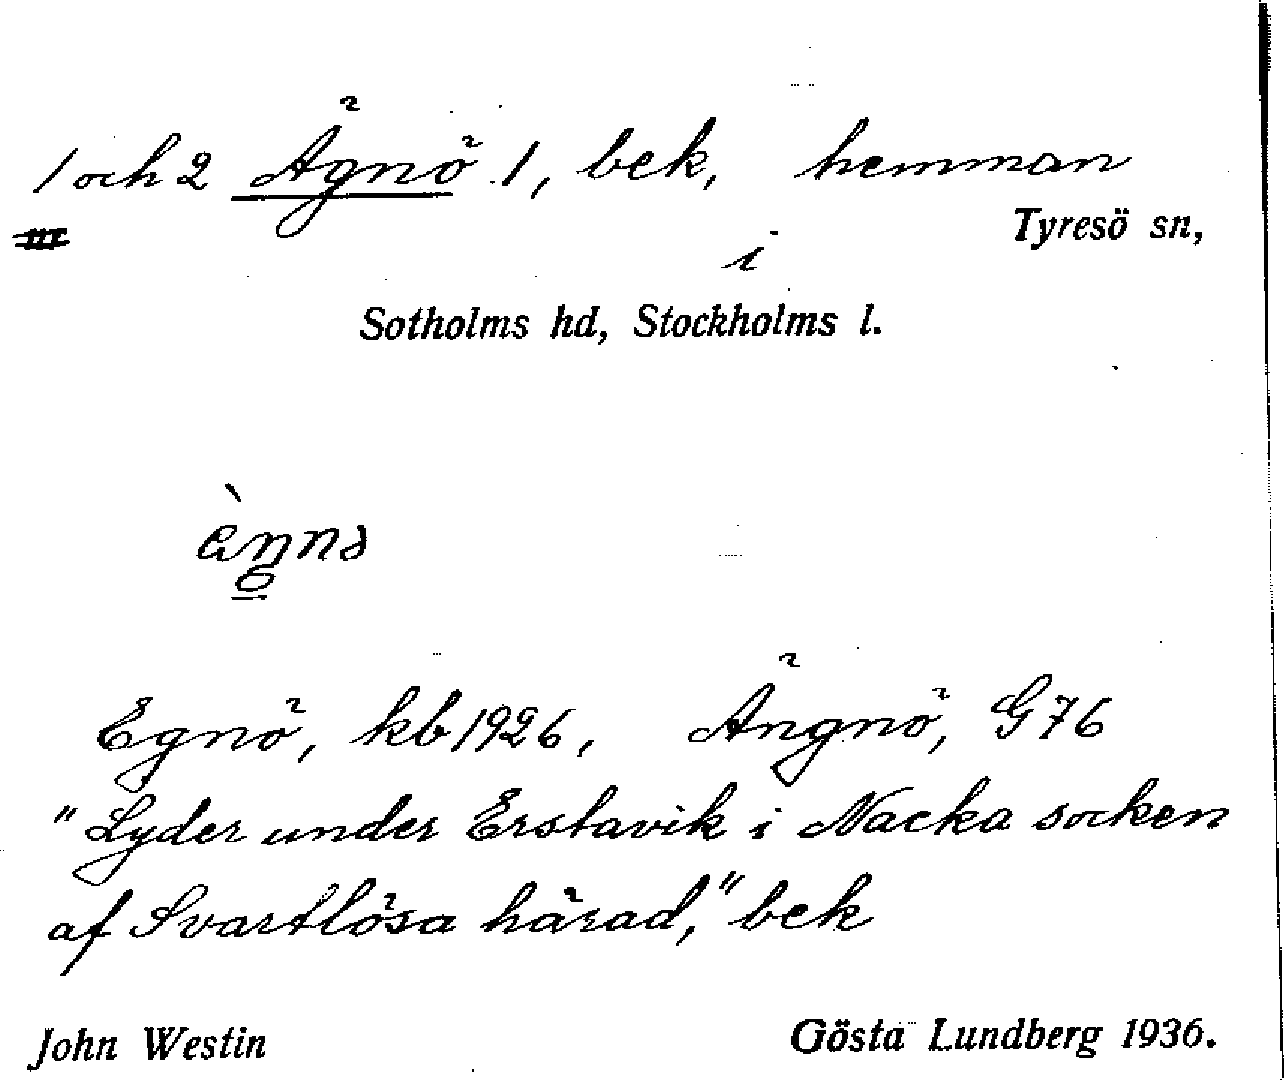 1 och 2 Ägnö 1, bek, hemman
Tyresö sn,
i
Sotholms hd, Stockholms l.
Egnö, kb 1926, Ängnö, G76
"Lyder under Erstavik i Nacka socken
af Svartlösa härad," bek
John Westin Gösta Lundberg 1936.